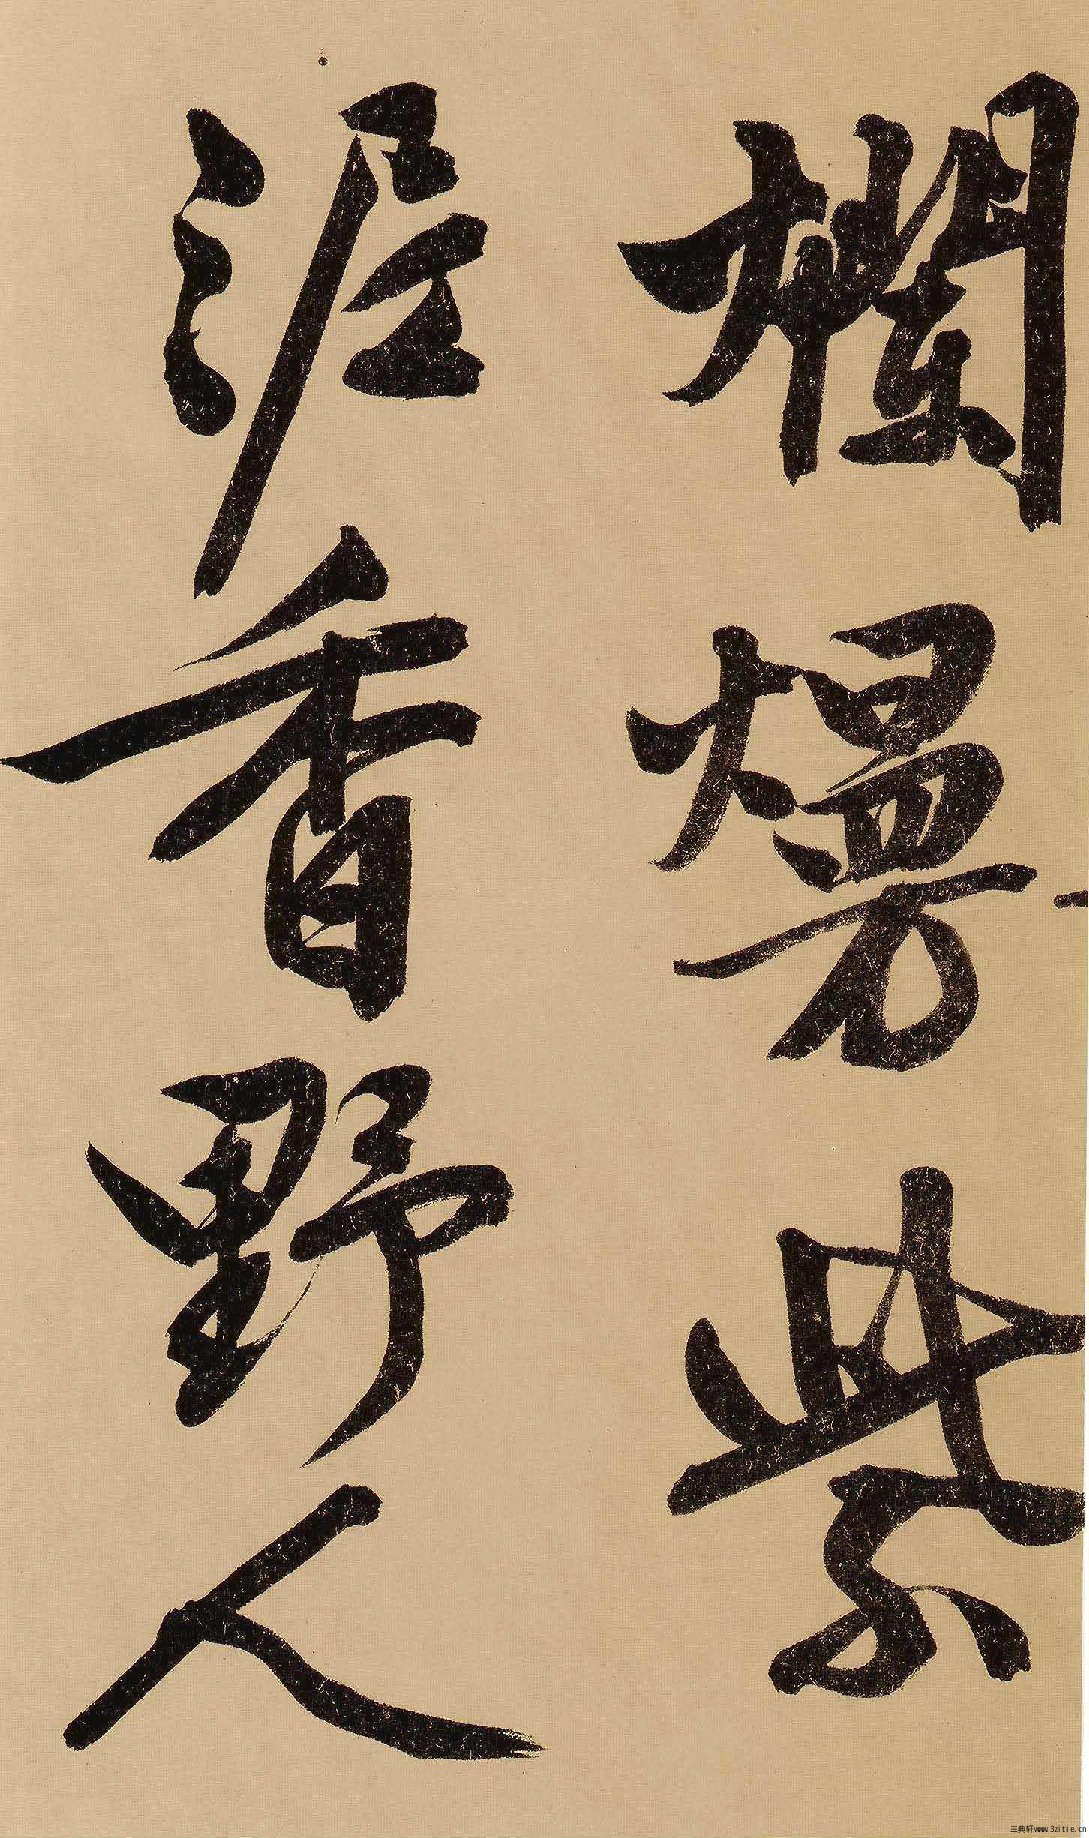 爛熳紫
泥香野人
三典轩www.3zitie.cn